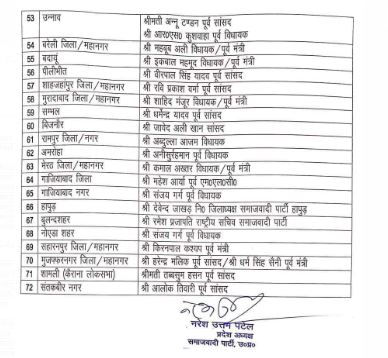 53 उन्नाव श्रीमती अन्नू टण्डन पूर्व सांसद
श्री आर०एस० कुशवाहा पूर्व विधायक
54 बरेली जिला/महानगर श्री महबूब अली विधायक/पूर्व मंत्री
55 बदायूं श्री इकबाल महमूद विधायक/पूर्व मंत्री
56 पीलीभीत श्री वीरपाल सिंह यादव पूर्व सांसद
57 शाहजहांपुर जिला/महानगर श्री रवि प्रकाश वर्मा पूर्व सांसद
58 मुरादाबाद जिला/महानगर श्री शाहिद मंजूर विधायक/पूर्व मंत्री
59 सम्भल श्री धर्मेन्द्र यादव पूर्व सांसद
60 बिजनौर श्री जावेद अली खान सांसद
61 रामपुर जिला/नगर श्री अब्दुल्ला आजम विधायक
62 अमरोहा श्री अनीसुर्रहमान पूर्व विधायक
63 मेरठ जिला/महानगर श्री कमाल अख्तर विधायक/पूर्व मंत्री
64 गाजियाबाद जिला श्री महेश आर्या पूर्व एम०एल०सी०
65 गाजियाबाद नगर श्री संजय गर्ग पूर्व विधायक
66 हापुड़ श्री देवेन्द्र जाखड़ नि० जिलाध्यक्ष समाजवादी पार्टी हापुड़
67 बुलन्दशहर श्री रमेश प्रजापति राष्ट्रीय सचिव समाजवादी पार्टी
68 नोएडा शहर श्री संजय गर्ग पूर्व विधायक
69 सहारनपुर जिला/महानगर श्री किरनपाल कश्यप पूर्व मंत्री
70 मुजफ्फरनगर जिला/महानगर श्री हरेन्द्र मलिक पूर्व सांसद/श्री धर्म सिंह सैनी पूर्व मंत्री
71 शामली (कैराना लोकसभा) श्रीमती तब्बसुम हसन पूर्व सांसद
72 संतकबीर नगर श्री आलोक तिवारी पूर्व सांसद
नरेश उत्तम पटेल
प्रदेश अध्यक्ष
समाजवादी पार्टी, उ०प्र०